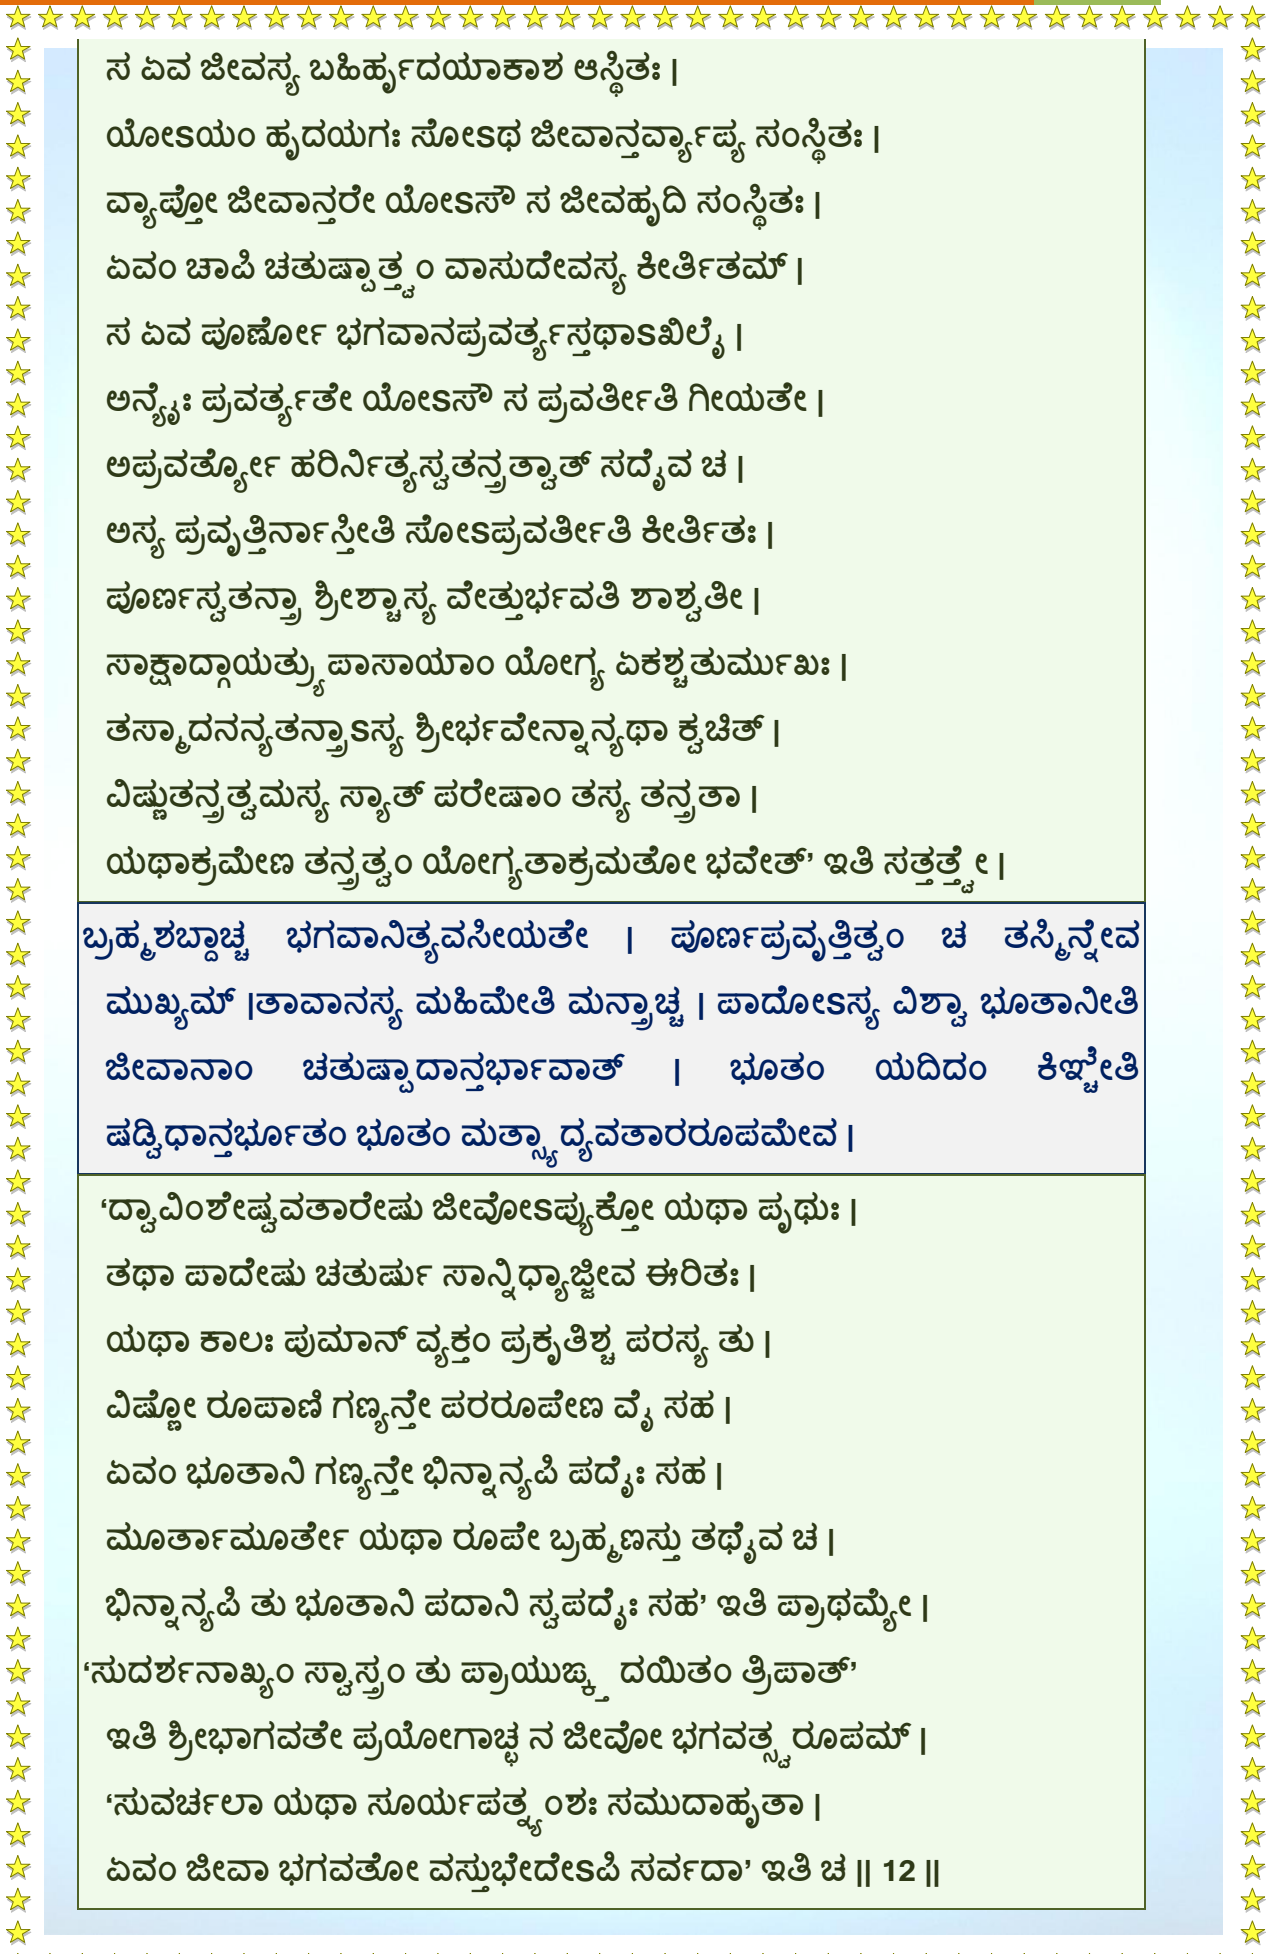 ಸ ಏವ ಜೀವಸ್ಯ ಬಹಿರ್ಹೃದಯಾಕಾಶ ಆಸ್ಥಿತಃ |
ಯೋSಯಂ ಹೃದಯಗಃ ಸೋSಥ ಜೀವಾನ್ತರ್ವ್ಯಾಪ್ಯ ಸಂಸ್ಥಿತಃ |
ವ್ಯಾಪ್ತೋ ಜೀವಾನ್ತರೇ ಯೋSಸೌ ಸ ಜೀವಹೃದಿ ಸಂಸ್ಥಿತಃ |
ಏವಂ ಚಾಪಿ ಚತುಷ್ಪಾತ್ತ್ವಂ ವಾಸುದೇವಸ್ಯ ಕೀರ್ತಿತಮ್ |
ಸ ಏವ ಪೂರ್ಣೋ ಭಗವಾನಪ್ರವರ್ತ್ಯಸ್ತಥಾSಖಿಲೈ |
ಅನ್ಯೈಃ ಪ್ರವರ್ತ್ಯತೇ ಯೋSಸೌ ಸ ಪ್ರವರ್ತೀತಿ ಗೀಯತೇ |
ಅಪ್ರವರ್ತ್ಯೋ ಹರಿರ್ನಿತ್ಯಸ್ವತನ್ತ್ರತ್ವಾತ್ ಸದೈವ ಚ |
ಅಸ್ಯ ಪ್ರವೃತ್ತಿರ್ನಾಸ್ತೀತಿ ಸೋSಪ್ರವರ್ತೀತಿ ಕೀರ್ತಿತಃ |
ಪೂರ್ಣಸ್ವತನ್ತ್ರಾ ಶ್ರೀಶ್ಚಾಸ್ಯ ವೇತ್ತುರ್ಭವತಿ ಶಾಶ್ವತೀ |
ಸಾಕ್ಷಾದ್ಗಾಯತ್ರ್ಯುಪಾಸಾಯಾಂ ಯೋಗ್ಯ ಏಕಶ್ಚತುರ್ಮುಖಃ |
ತಸ್ಮಾದನನ್ಯತನ್ತ್ರಾSಸ್ಯ ಶ್ರೀರ್ಭವೇನ್ನಾನ್ಯಥಾ ಕ್ವಚಿತ್ |
ವಿಷ್ಣುತನ್ತ್ರತ್ವಮಸ್ಯ ಸ್ಯಾತ್ ಪರೇಷಾಂ ತಸ್ಯ ತನ್ತ್ರತಾ |
ಯಥಾಕ್ರಮೇಣ ತನ್ತ್ರತ್ವಂ ಯೋಗ್ಯತಾಕ್ರಮತೋ ಭವೇತ್’ ಇತಿ ಸತ್ತತ್ತ್ವೇ |
ಬ್ರಹ್ಮಶಬ್ದಾಚ್ಚ ಭಗವಾನಿತ್ಯವಸೀಯತೇ | ಪೂರ್ಣಪ್ರವೃತ್ತಿತ್ವಂ ಚ ತಸ್ಮಿನ್ನೇವ
ಮುಖ್ಯಮ್ |ತಾವಾನಸ್ಯ ಮಹಿಮೇತಿ ಮನ್ತ್ರಾಚ್ಚ | ಪಾದೋSಸ್ಯ ವಿಶ್ವಾ ಭೂತಾನೀತಿ
ಜೀವಾನಾಂ ಚತುಷ್ಪಾದಾನ್ತರ್ಭಾವಾತ್ | ಭೂತಂ ಯದಿದಂ ಕಿಞ್ಚೇತಿ
ಷಡ್ವಿಧಾನ್ತರ್ಭೂತಂ ಭೂತಂ ಮತ್ಸ್ಯಾದ್ಯವತಾರರೂಪಮೇವ |
‘ದ್ವಾವಿಂಶೇಷ್ವವತಾರೇಷು ಜೀವೋSಪ್ಯುಕ್ತೋ ಯಥಾ ಪೃಥುಃ |
ತಥಾ ಪಾದೇಷು ಚತುರ್ಷು ಸಾನ್ನಿಧ್ಯಾಜ್ಜೀವ ಈರಿತಃ |
ಯಥಾ ಕಾಲಃ ಪುಮಾನ್ ವ್ಯಕ್ತಂ ಪ್ರಕೃತಿಶ್ಚ ಪರಸ್ಯ ತು |
ವಿಷ್ಣೋ ರೂಪಾಣಿ ಗಣ್ಯನ್ತೇ ಪರರೂಪೇಣ ವೈ ಸಹ |
ಏವಂ ಭೂತಾನಿ ಗಣ್ಯನ್ತೇ ಭಿನ್ನಾನ್ಯಪಿ ಪದೈಃ ಸಹ |
ಮೂರ್ತಾಮೂರ್ತೇ ಯಥಾ ರೂಪೇ ಬ್ರಹ್ಮಣಸ್ತು ತಥೈವ ಚ |
ಭಿನ್ನಾನ್ಯಪಿ ತು ಭೂತಾನಿ ಪದಾನಿ ಸ್ವಪದೈಃ ಸಹ’ ಇತಿ ಪ್ರಾಥಮ್ಯೇ |
‘ಸುದರ್ಶನಾಖ್ಯಂ ಸ್ವಾಸ್ತ್ರಂ ತು ಪ್ರಾಯುಙ್ಕ್ತ ದಯಿತಂ ತ್ರಿಪಾತ್’
ಇತಿ ಶ್ರೀಭಾಗವತೇ ಪ್ರಯೋಗಾಚ್ಛ ನ ಜೀವೋ ಭಗವತ್ಸ್ವರೂಪಮ್ |
‘ಸುವರ್ಚಲಾ ಯಥಾ ಸೂರ್ಯಪತ್ನ್ಯಂಶಃ ಸಮುದಾಹೃತಾ |
ಏವಂ ಜೀವಾ ಭಗವತೋ ವಸ್ತುಭೇದೇSಪಿ ಸರ್ವದಾ’ ಇತಿ ಚ || 12 ||